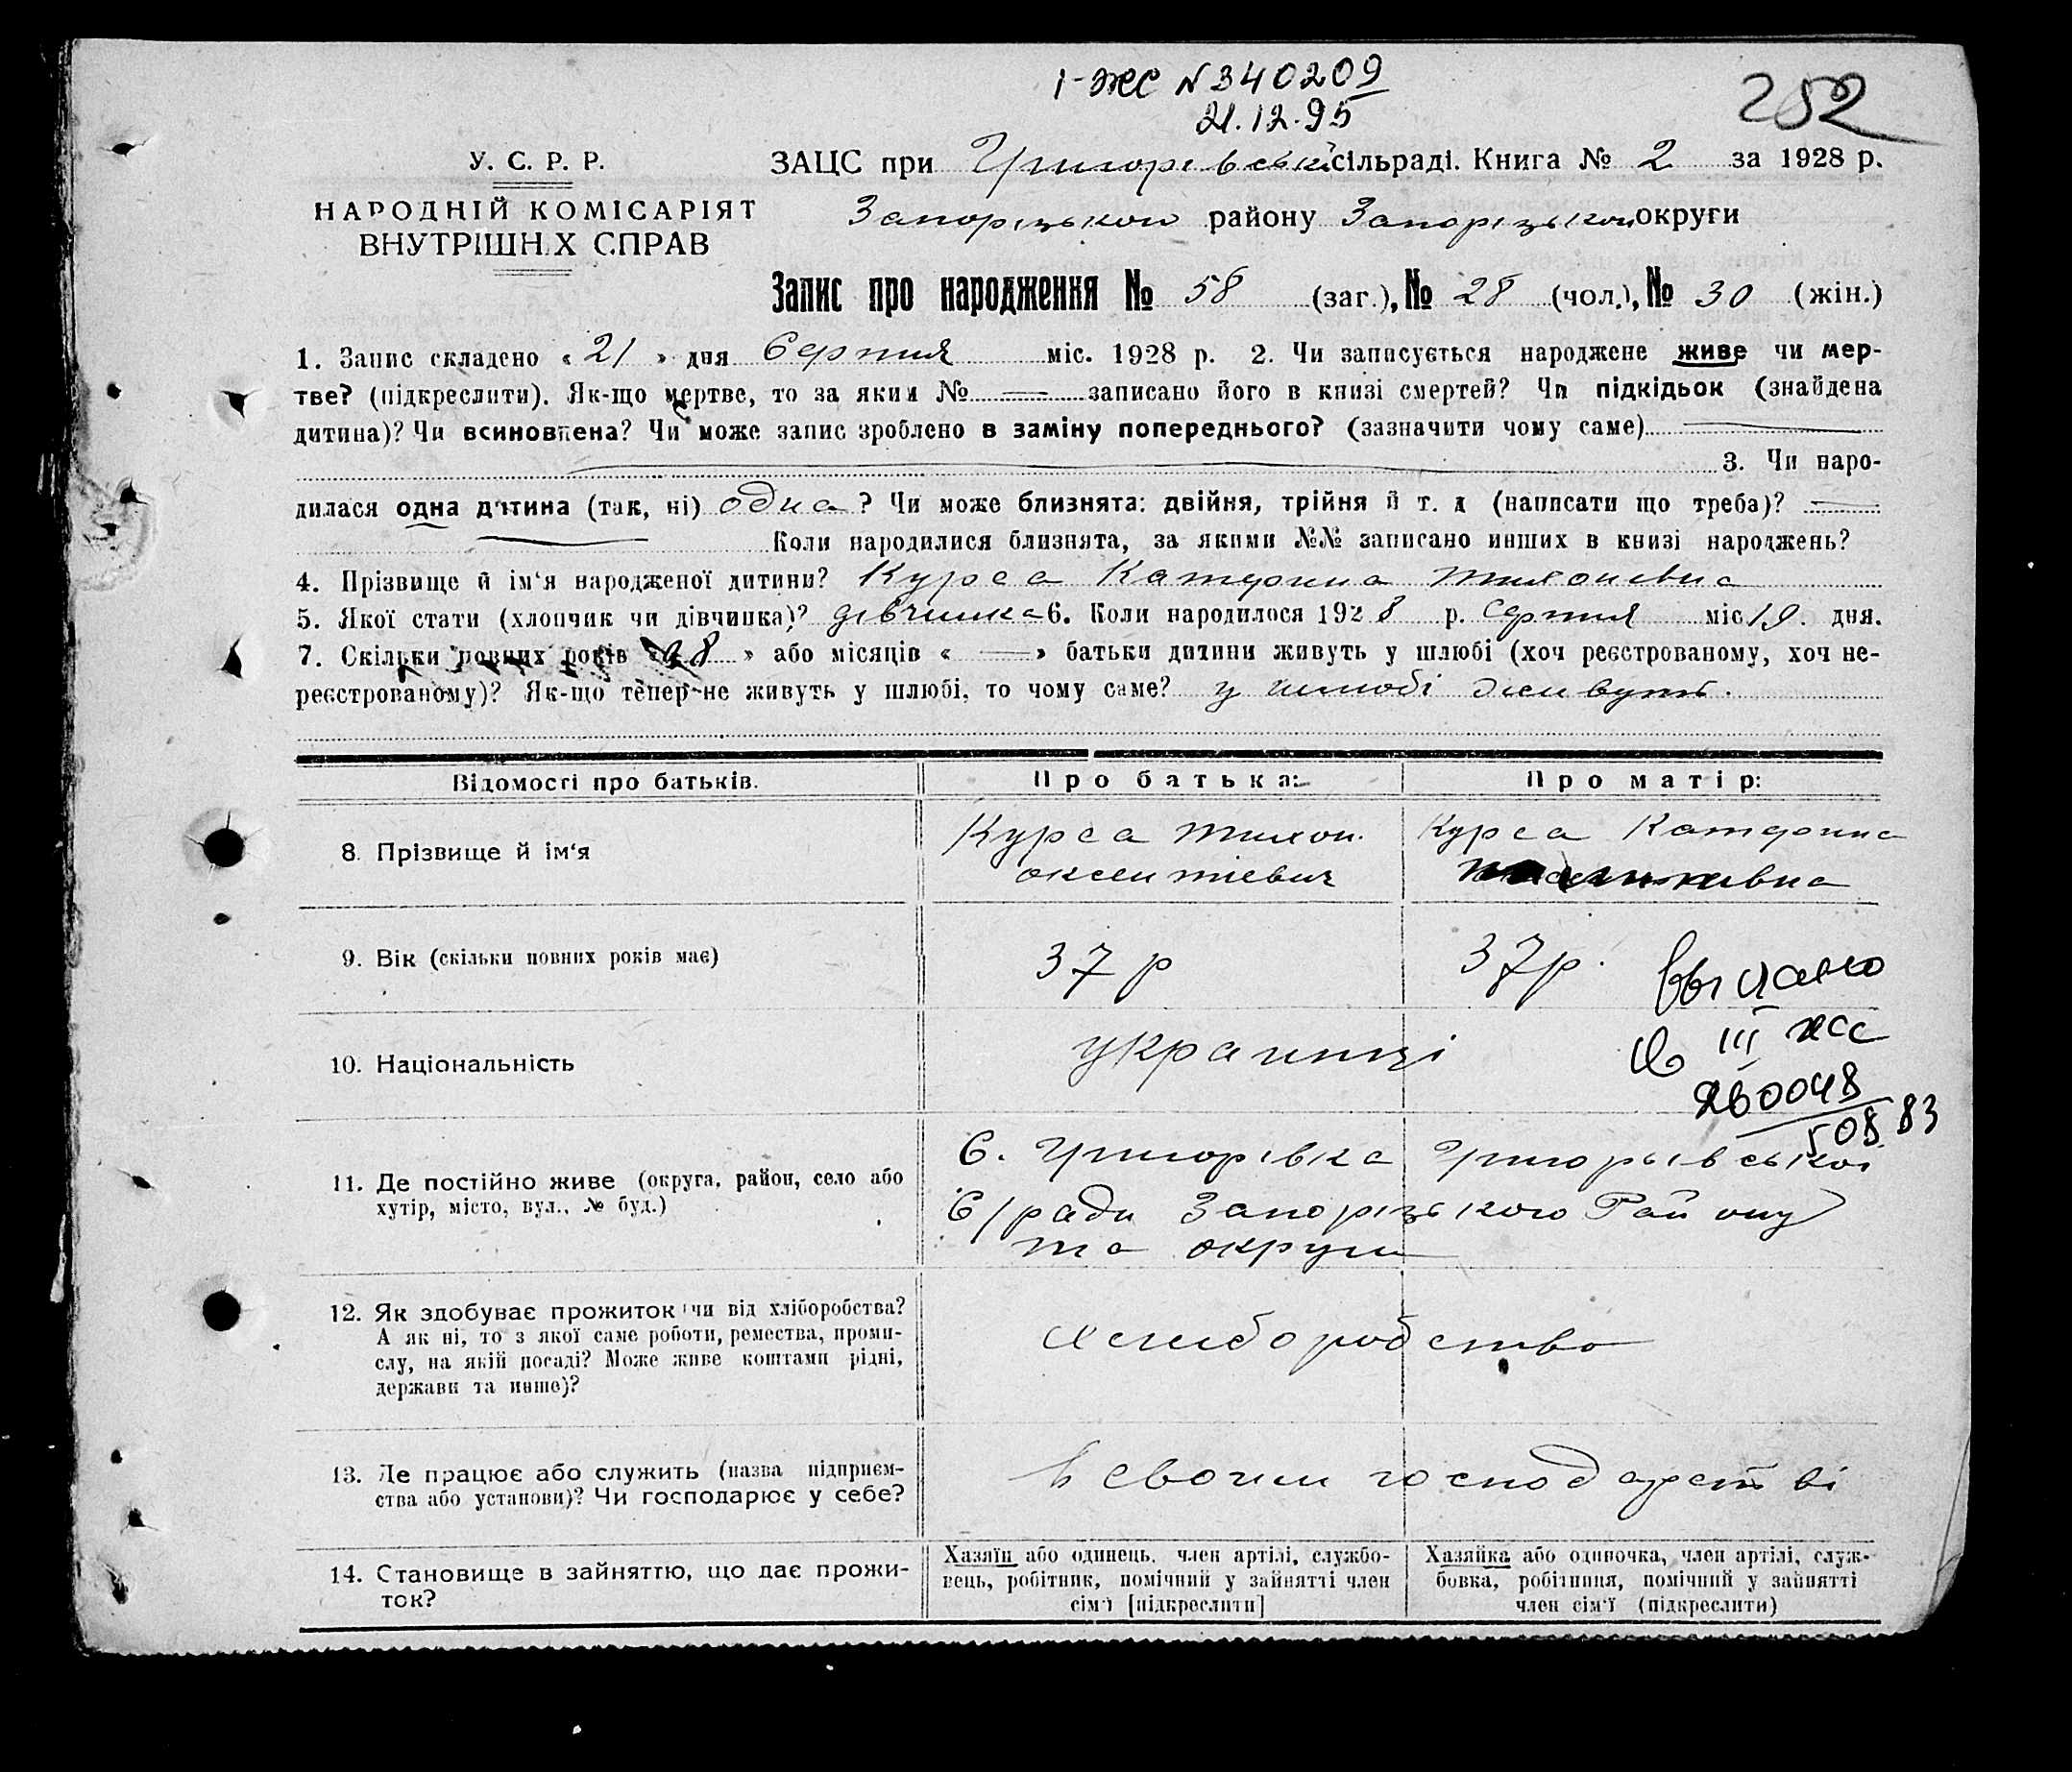 I-ЖС N 340209
21.12.95
252
У. С. Р. Р.
НАРОДНІЙ КОМІСАРІЯТ
ВНУТРІШНіХ СПРАВ
ЗАЦС при Григорівській сільраді. Книга № 2 за 1928 р.
Запорізького району Запорізької округи
Запис про народження № 58 (заг.), № 28 (чол.), № 30 (жін.)
1. Запис складено « 21 » дня Серпня міс. 1928 р. 2. Чи записується народжене живе чи мер-
тве? (підкреслити). Як-що мертве, то за яким № — записано його в книзі смертей? Чи підкідьок (знайдена
дитина)? Чи всиновлена? Чи може запис зроблено в заміну попереднього? (зазначити чому саме)
3. Чи наро-
дилася одна дитина (так, ні) одна? Чи може близнята: двійня, трійня й т. д (написати що треба)? —
— Коли народилися близнята, за якими №№ записано инших в книзі народжень?
4. Прізвище й ім'я народженої дитини? Курса Катерина Тихоневна
5. Якої стати (хлопчик чи дівчинка)? дівчинка 6. Коли народилося 1928 р. Серпня міс 19. дня.
7. Скільки повних років « 8 » або місяців « — » батьки дитини живуть у шлюбі (хоч реєстрованому, хоч не-
реєстрованому)? Як-що тепер не живуть у шлюбі, то чому саме? у шлюбі живуть.
Відомості про батьків.
Про батька:
Про матір:
8. Прізвище й ім'я
Курса Тихон
Оксентіевич
Курса Катерина
9. Вік (скільки повних років має)
37 р
37 р.
Выдано
III ЖС
260048
5 08 83
10. Національність
українці
11. Де постійно живе (округа, район, село або
хутір, місто, вул., № буд.)
С. Григорівка Григорьівської
С/ради Запорізького Району
та округи
12. Як здобуває прожиток чи від хліборобства?
А як ні, то з якої саме роботи, ремества, проми-
слу, на якій посаді? Може живе коштами рідні,
держави та инше)?
хлиборобство
13. Де працює або служить (назва підприєм-
ства або установи)? Чи господарює у себе?
В своїм господарстві
14. Становище в зайняттю, що дає прожи-
ток?
Хазяїн або одинець, член артілі, службо-
вець, робітник, помічний у зайнятті член
сім'ї [підкреслити]
Хазяйка або одиночка, член артілі, служ-
бовка, робітниця, помічний у зайнятті
член сім'ї (підкреслити)